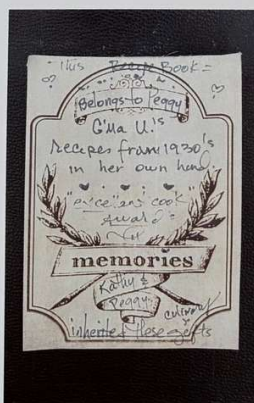 This Recipe Book =
Belongs to Peggy
G'Ma U.'s
Recipes from 1930's
in her own hand.
"excellent cook"
Award =
memories
Kathy &
Peggy
culinary
inherited these gifts